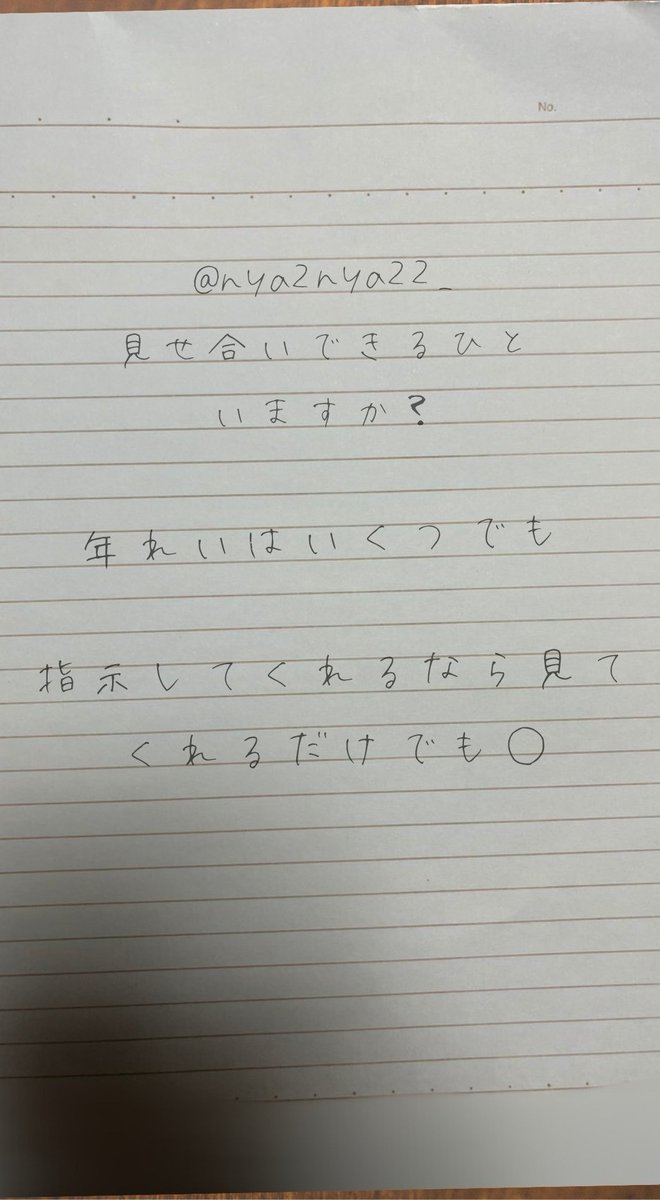 No.
@nya2nya22_
見せ合いできるひと
いますか?
年れいはいくつでも
指示してくれるなら見て
くれるだけでも○